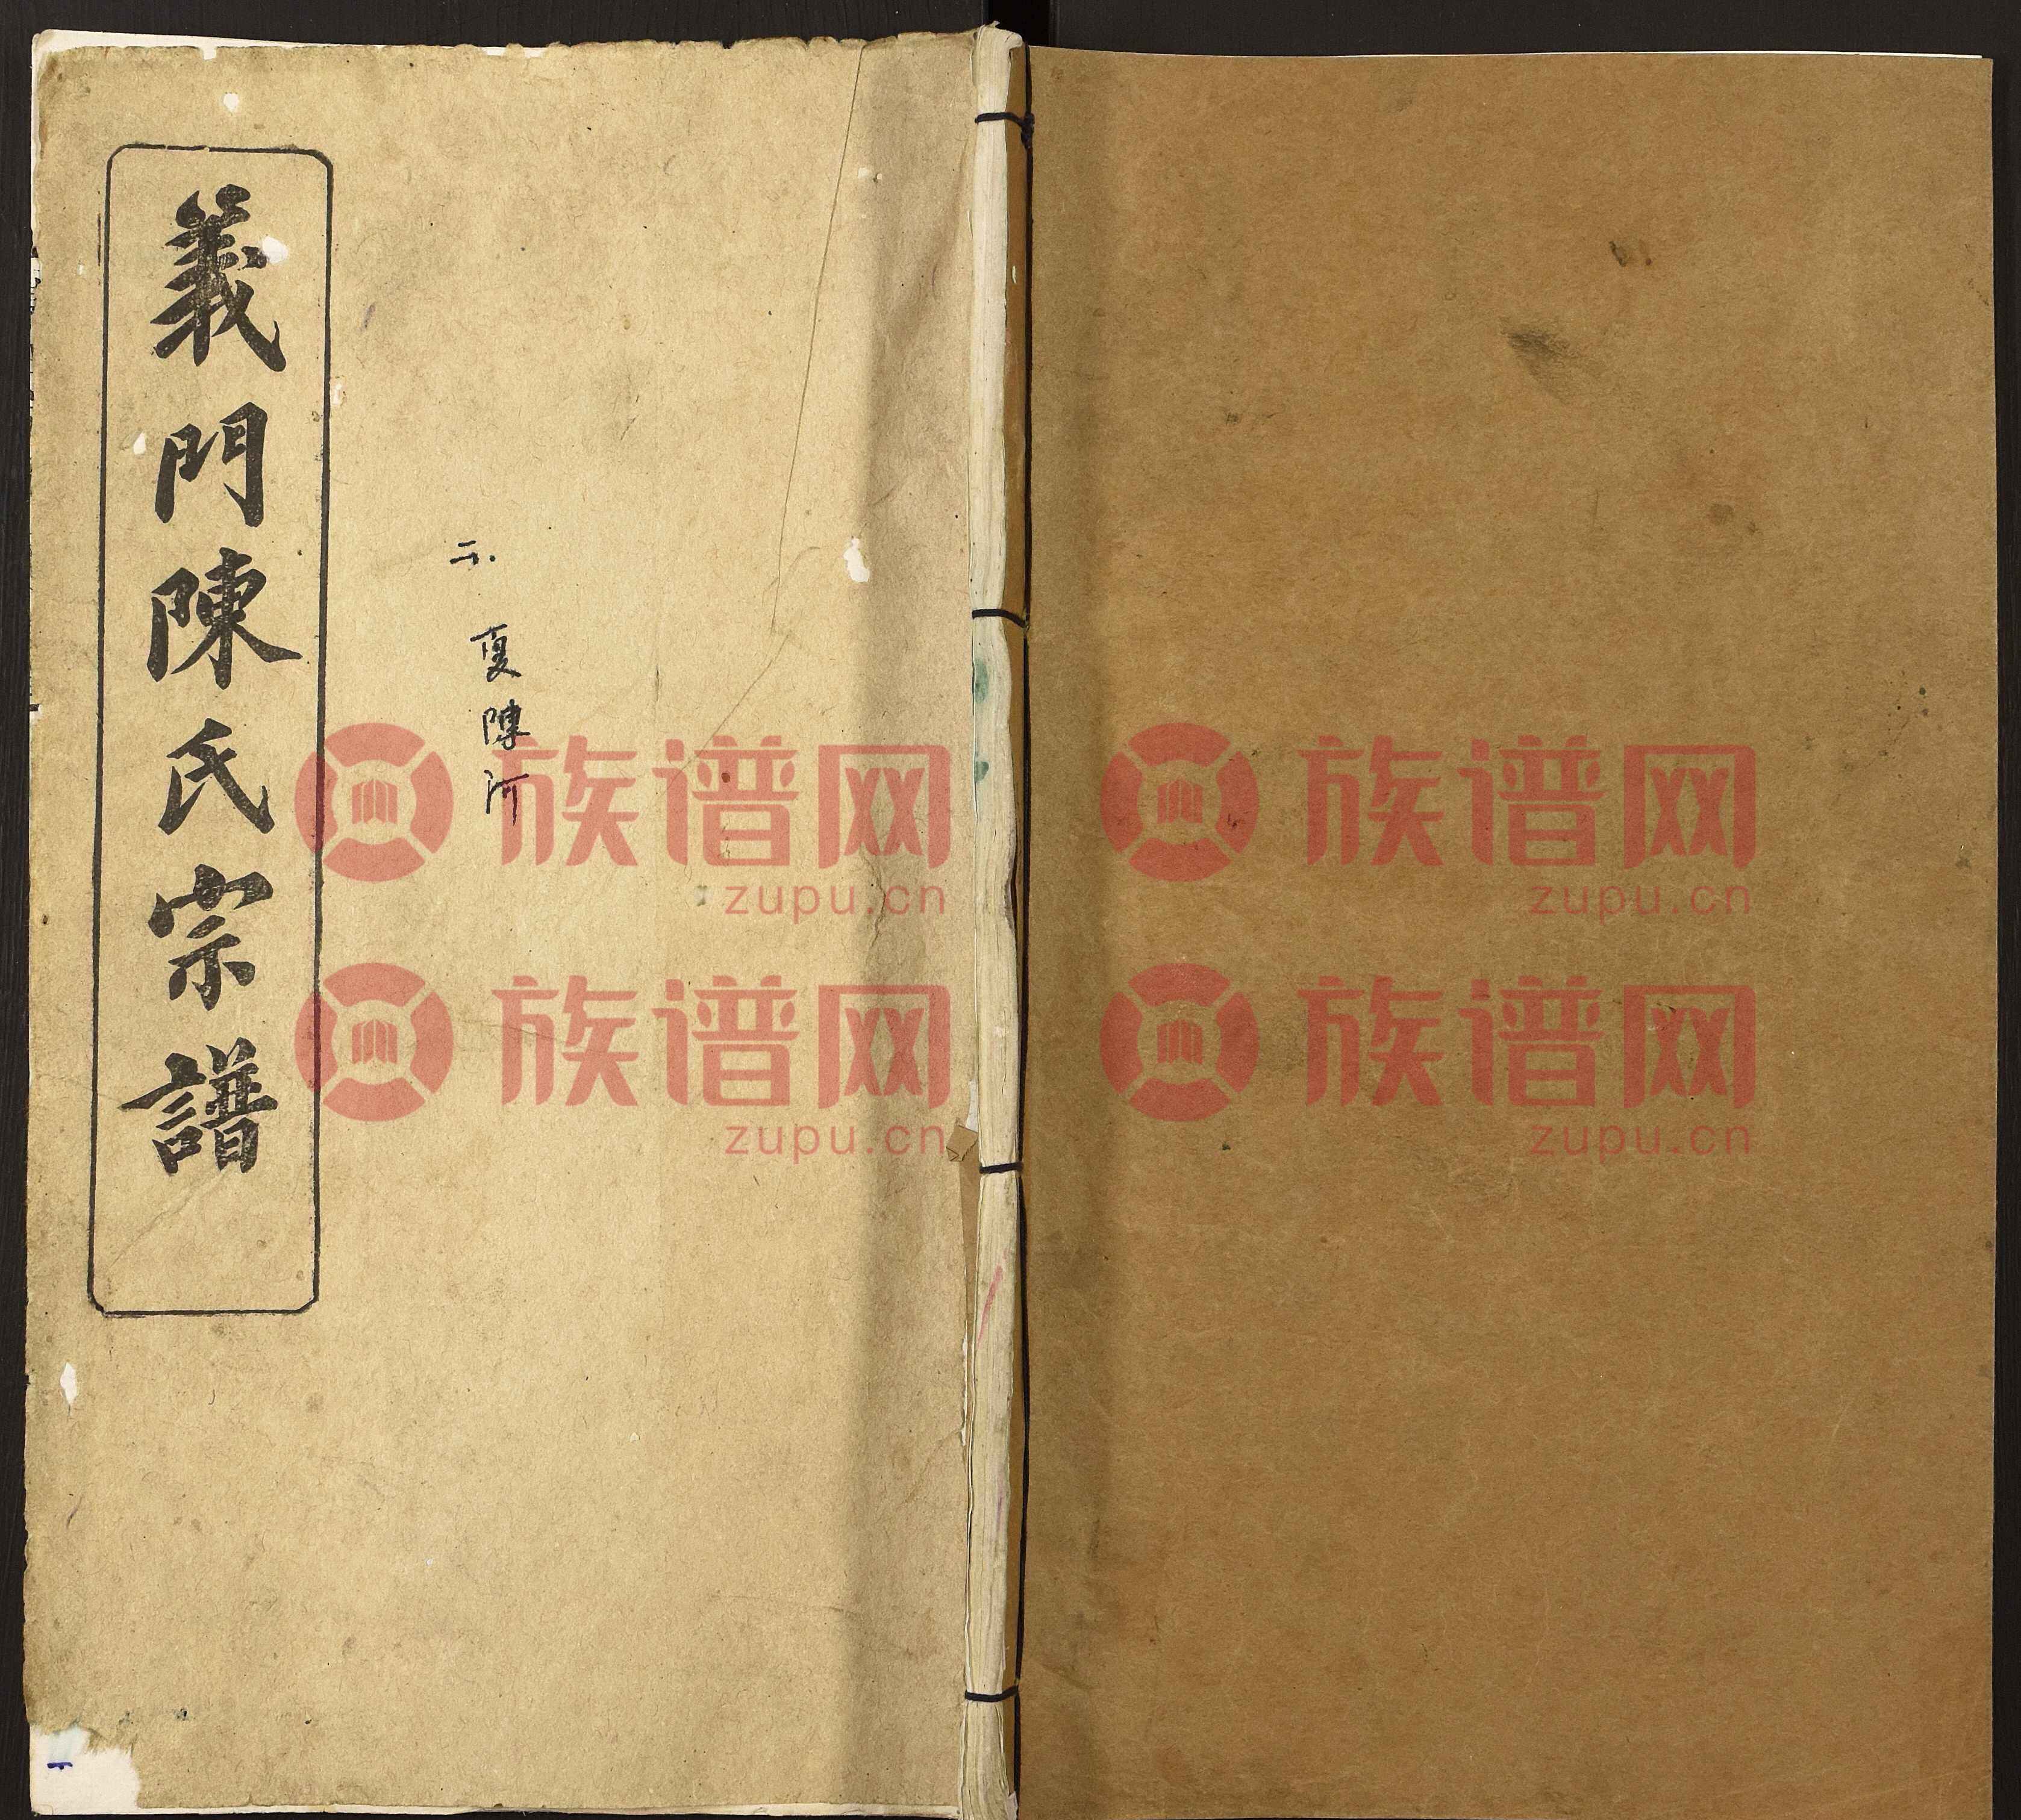 義門陳氏宗譜
二.
夏陳河
族谱网
zupu.cn
族谱网
zupu.cn
族谱网
zupu.cn
族谱网
zupu.cn